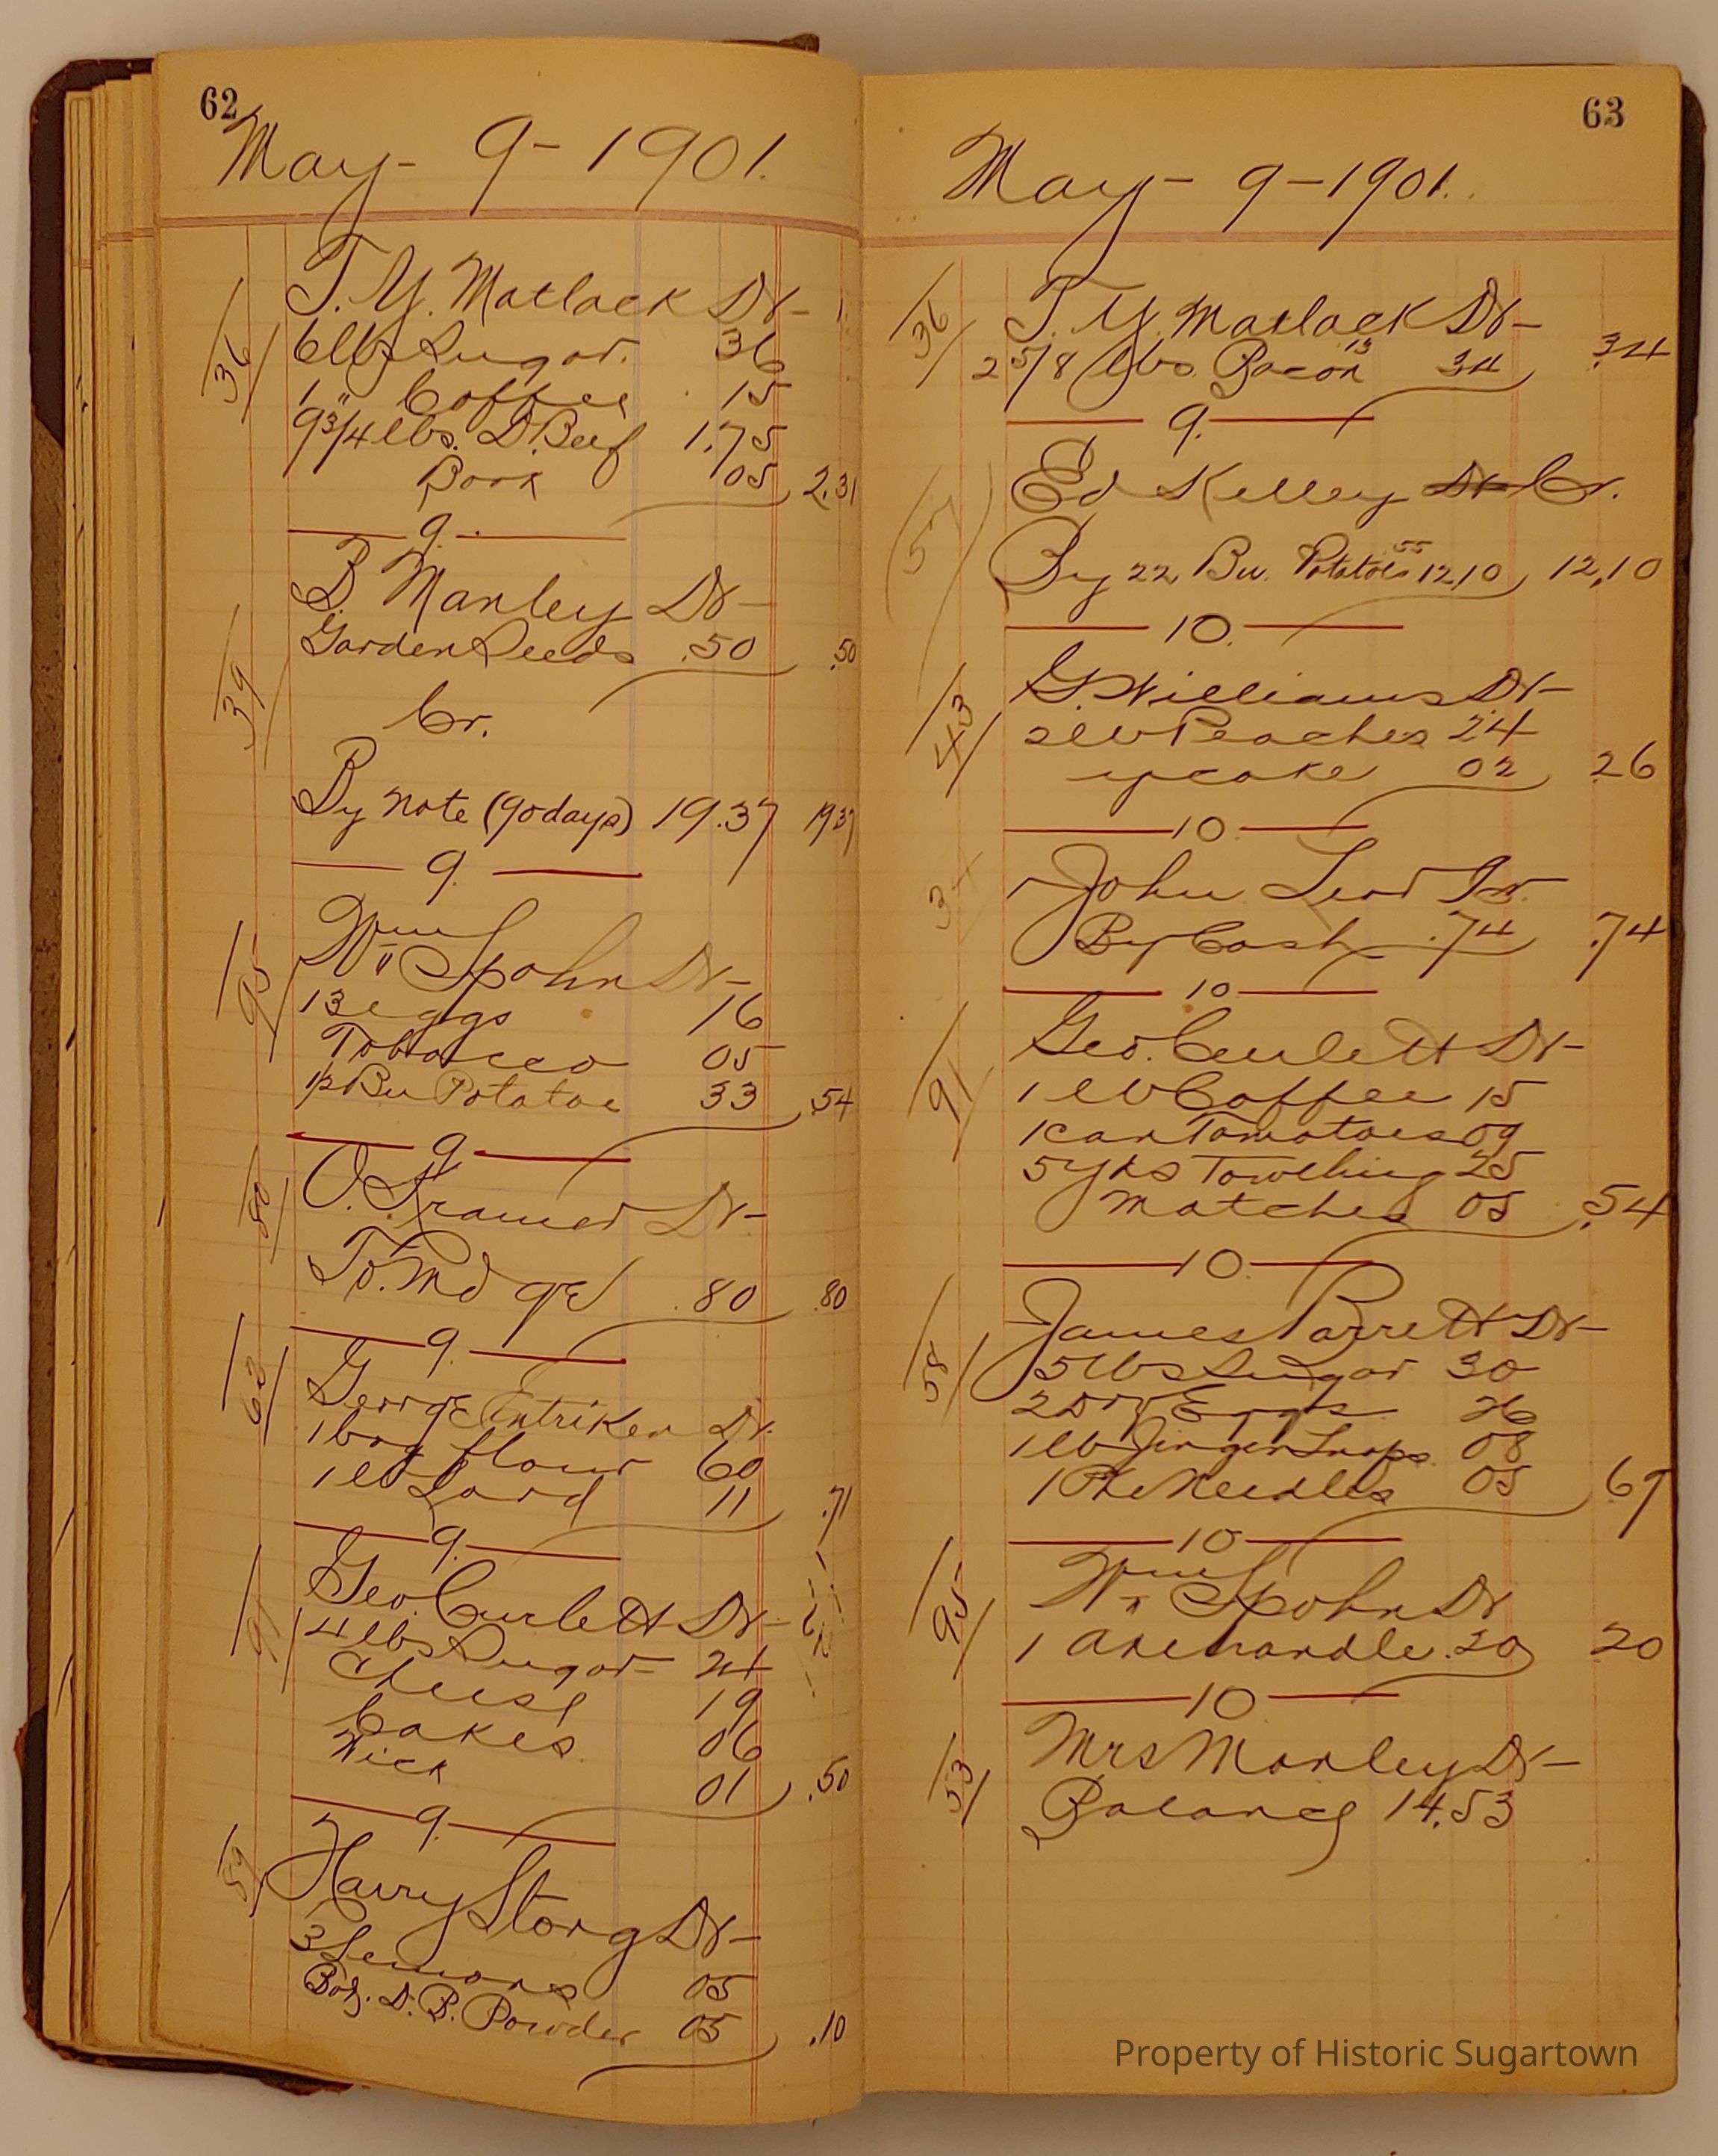 62
May - 9 - 1901.
36
T. Y. Matlack Dr -
6 lbs Sugar. 36
1 " Coffee 15
9 3/4 lbs. D. Beef 1.75
Book 05 2.31
9.
39
B. Manley Dr -
Garden Seeds .50 .50
Cr.
By note (90 days) 19.37 19.37
9.
95
Wm Spohn Dr -
13 eggs 16
Tobacco 05
1/2 Bu Potatoe 33 .54
9
80
O. Kramer Dr -
To. Mdge .80 .80
9.
62
George Entriken Dr.
1 bag flour 60
1 lb Lard 11 .71
9.
91
Geo. Curlett Dr -
4 lbs Sugar 24
Cheese 19
Cakes. 06
Wick 01 .50
9.
59
Harry Stong Dr -
3 Lemons 05
Box. D. B. Powder 05 .10
63
May - 9 - 1901.
36
T. Y. Matlack Dr -
2 5/8 lbs Bacon 13 34 .34
9.
57
Ed Kelley Dr Cr.
By 22 Bu. Potatoes 55 12,10 12,10
10.
43
G. Williams Dr -
2 lb Peaches 24
y cake 02 .26
10.
34
John
By Cash .74 .74
10
91
Geo. Curlett Dr -
1 lb Coffee 15
1 can Tomatoes 09
5 yds Towelling 25
Matches 05 .54
10.
58
James Parrett Dr -
5 lbs Sugar 30
2 Doz Eggs 26
1 lb Ginger Snaps 08
1 Pk Needles 05 .69
10
95
Wm Spohn Dr
1 axe handle .20 .20
10
53
Mrs Manley Dr -
Balance 14.53
Property of Historic Sugartown